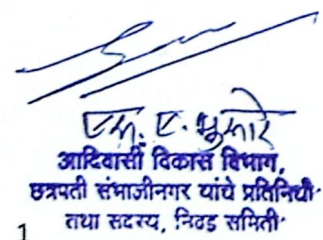 एम. ए. भुमरे
आदिवासी विकास विभाग,
छत्रपती संभाजीनगर यांचे प्रतिनिधी
तथा सदस्य, निवड समिती
1